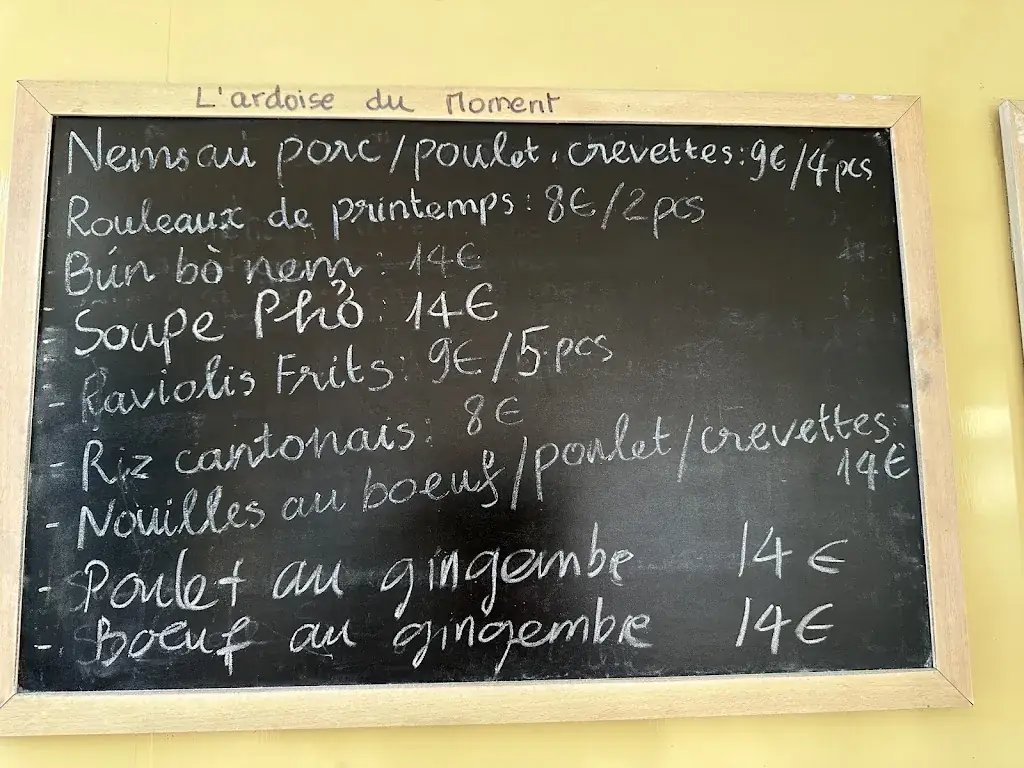 L'ardoise du Moment
Nems au porc/poulet, crevettes: 9€/4 pcs
Rouleaux de printemps: 8€/2pcs
- Bún bò nem: 14€
- Soupe Phở: 14€
- Raviolis Frits: 9€/5 pcs
- Riz cantonais: 8€
- Nouilles au boeuf/poulet/crevettes:
14€
- Poulet au gingembe 14€
- Boeuf au gingembre 14€